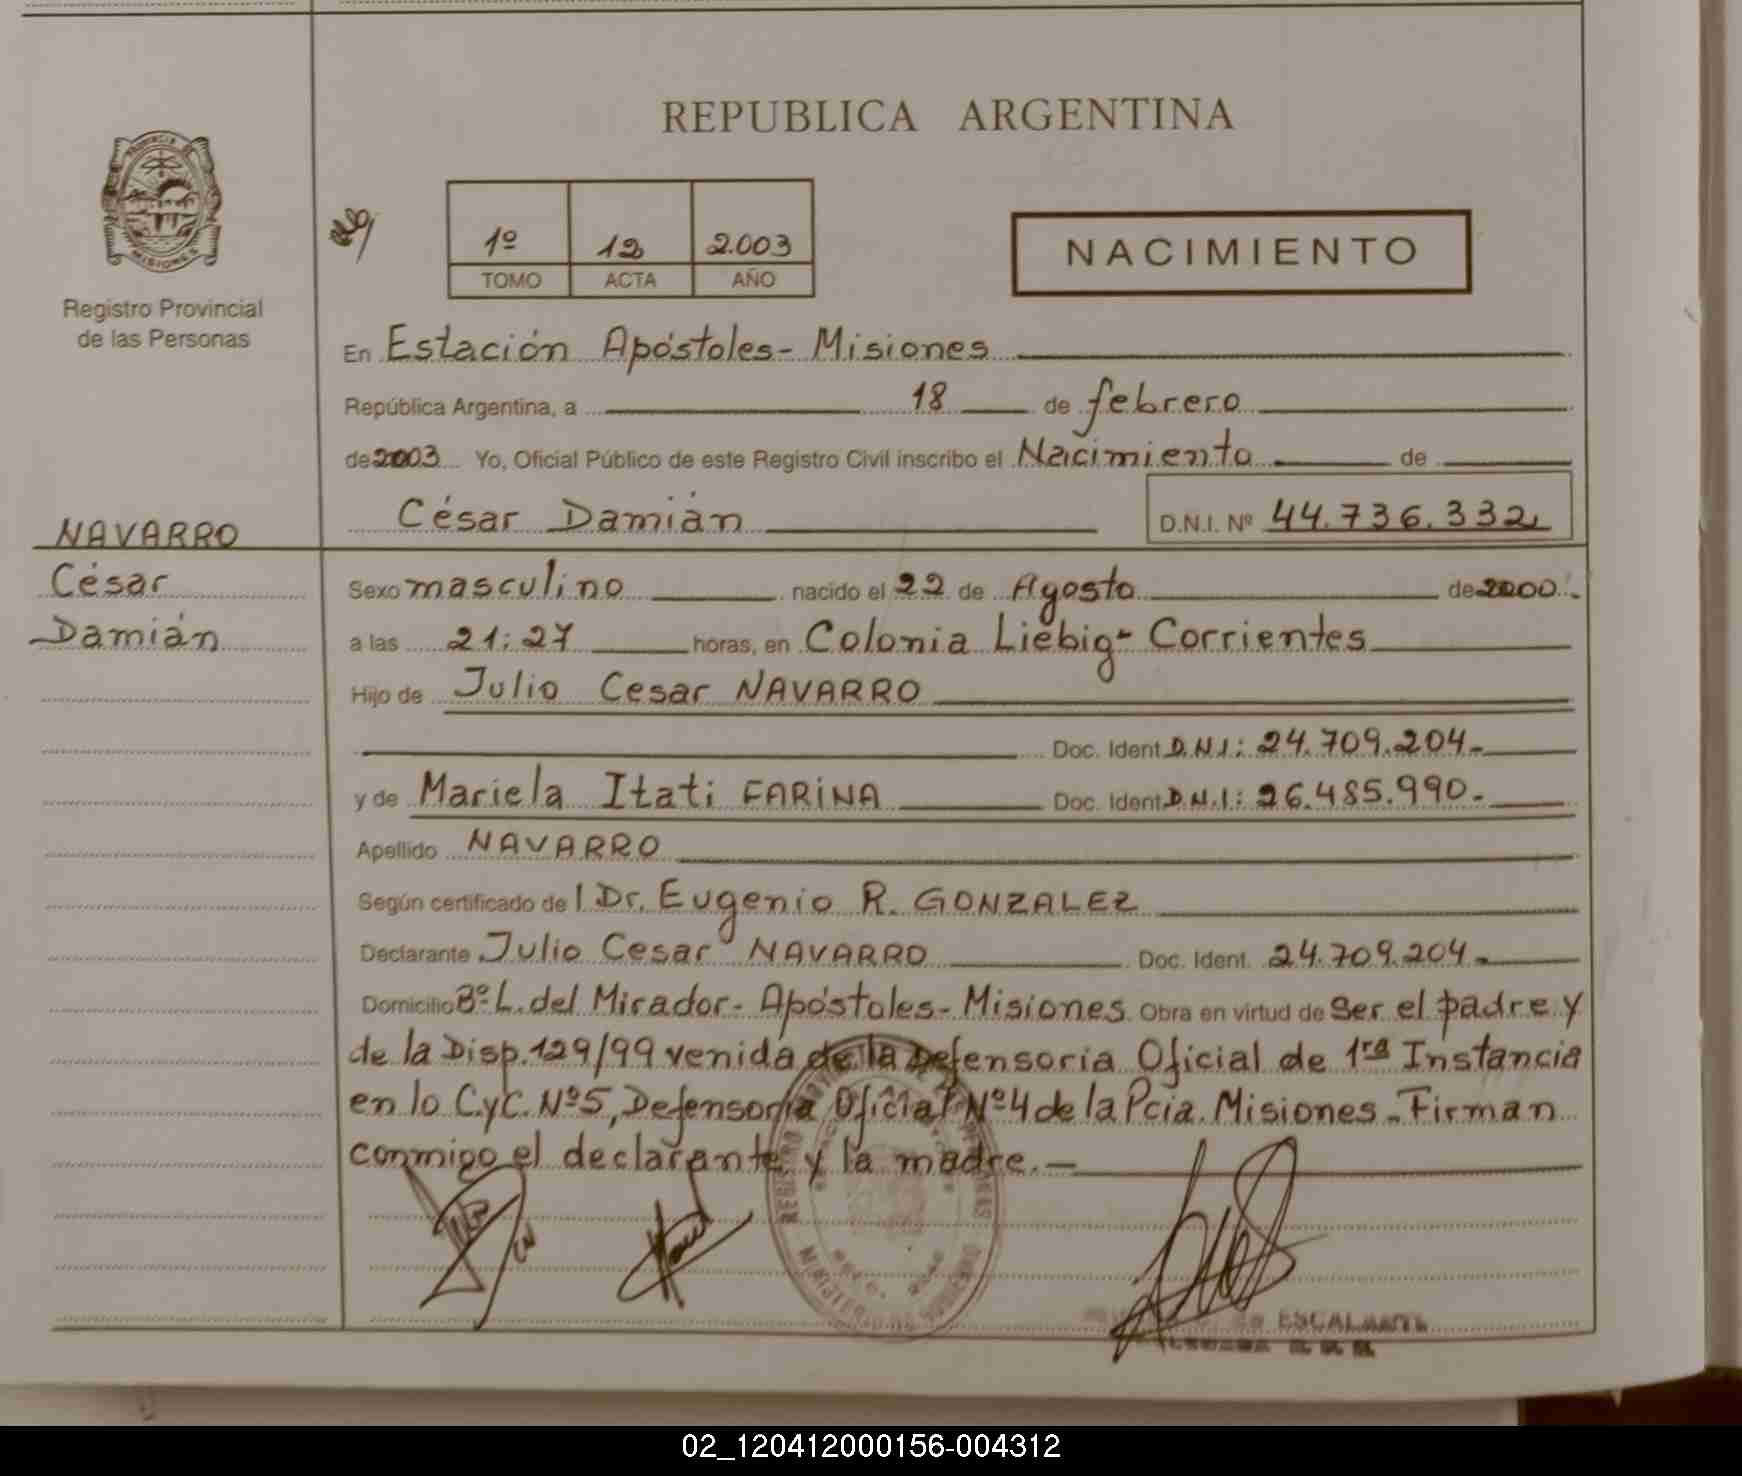 REPUBLICA ARGENTINA
PROVINCIA DE
MISIONES
Registro Provincial
de las Personas
1º 12 2.003
TOMO ACTA AÑO
NACIMIENTO
En Estación Apóstoles- Misiones
República Argentina, a 18 de febrero
de 2003 Yo, Oficial Público de este Registro Civil inscribo el Nacimiento de
César Damián D.N.I. Nº 44.736.332
NAVARRO
César
Damián
Sexo masculino nacido el 22 de Agosto de 2000.-
a las 21:27 horas, en Colonia Liebig- Corrientes
Hijo de Julio Cesar NAVARRO
Doc. Ident. D.N.I: 24.709.204-
y de Mariela Itati FARiNA Doc. Ident. D.N.I: 26.485.990-
Apellido NAVARRO
Según certificado del Dr. Eugenio R. GONZALEZ
Declarante Julio Cesar NAVARRO Doc. Ident. 24.709.204-
Domicilio Bº L. del Mirador- Apóstoles- Misiones Obra en virtud de ser el padre y
de la Disp. 129/99 venida de la Defensoria Oficial de 1ra Instancia
en lo C.yC. Nº5, Defensoria Oficial Nº4 de la Pcia. Misiones. Firman
conmigo el declarante y la madre.-
ESCALANTE
02_120412000156-004312